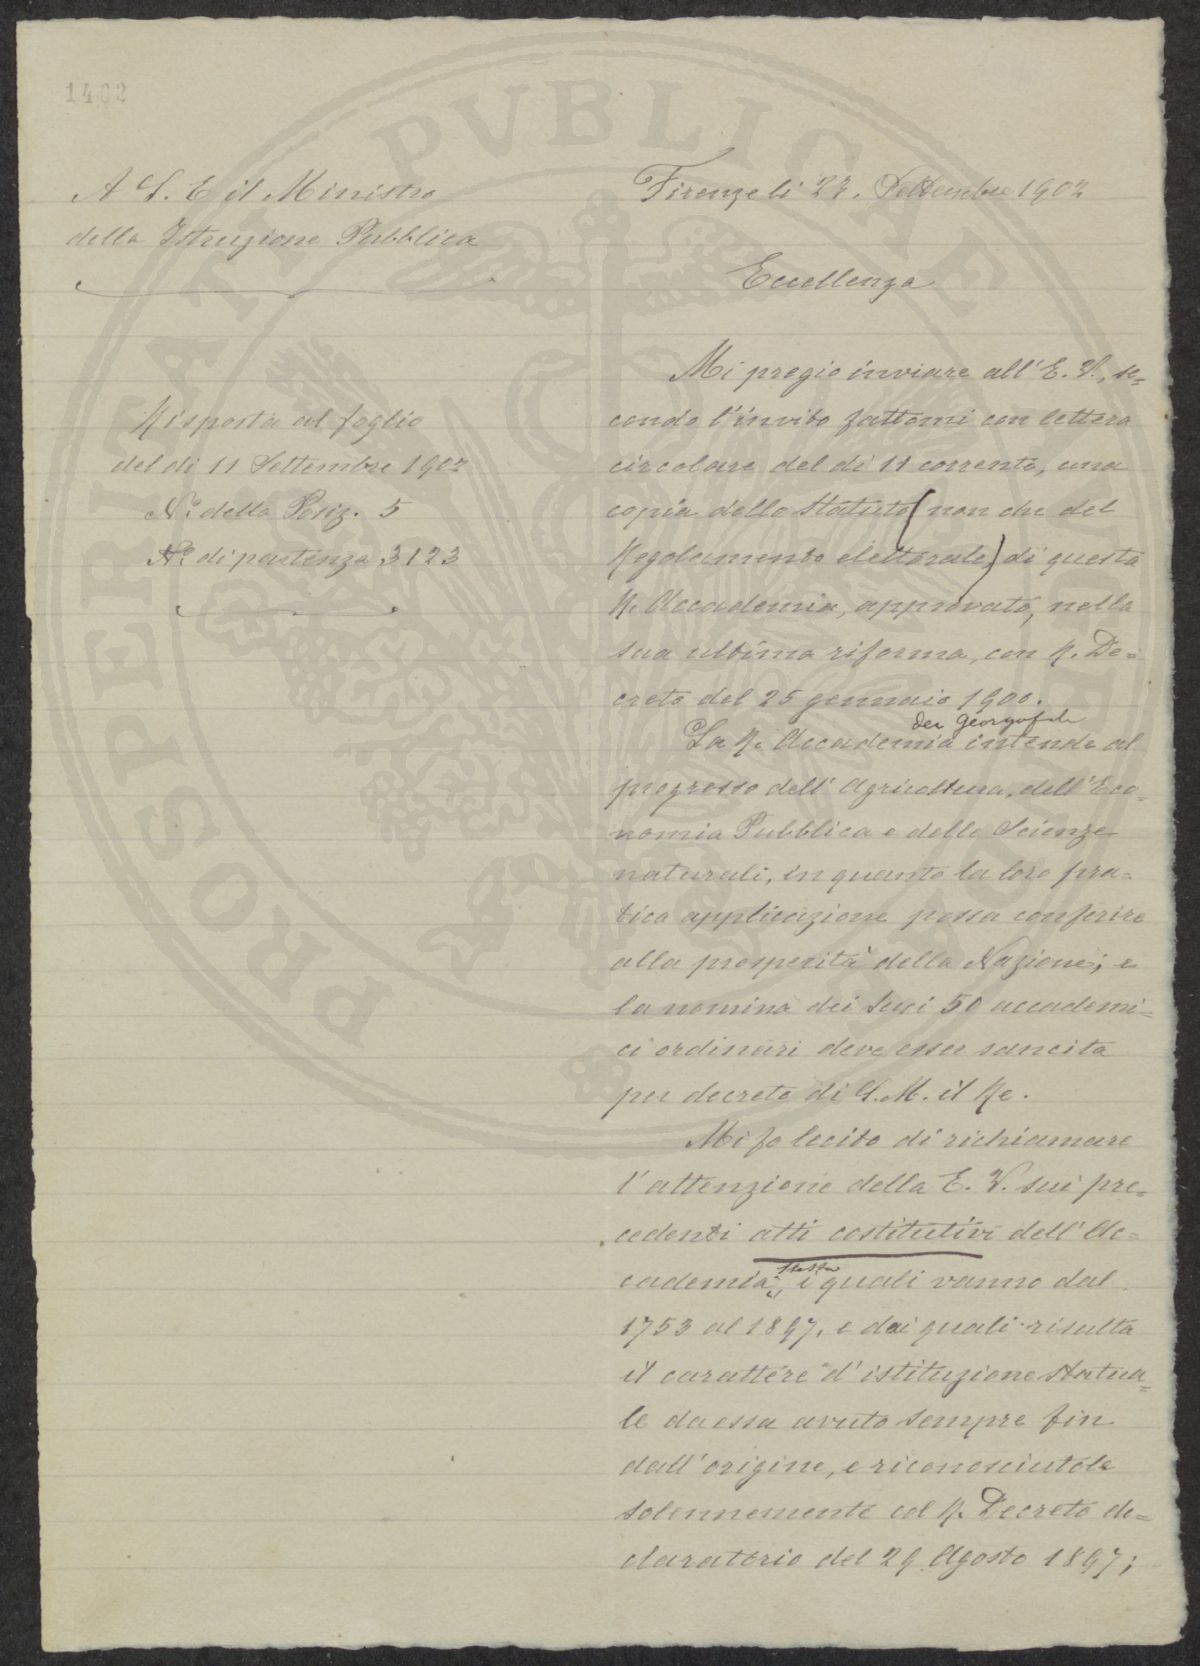 1402
A S. E il Ministro
della Istruzione Pubblica
Firenze li 27. Settembre 1902
Eccellenza
Risposta al foglio
del dì 11 Settembre 1902
N.° della Posiz. 5
N.° di partenza 3123
Mi pregio inviare all' E. V., se=
condo l'invito fattomi con lettera
circolare del dì 11 corrente, una
copia dello Statuto (non che del
Regolamento elettorale) di questa
R. Accademia, approvato, nella
sua ultima riforma, con R. De=
creto del 25 gennaio 1900.
dei Georgofili
La R. Accademia intende al
progresso dell' Agricoltura, dell' Eco=
nomia Pubblica e delle Scienze
naturali, in quanto la loro pra=
tica applicazione possa conferire
alla prosperità della Nazione; e
la nomina dei suoi 50 accademi=
ci ordinari deve esser sancita
per decreto di S. M. il Re.
Mi fo lecito di richiamare
l'attenzione della E. V. sui pre=
cedenti atti costitutivi dell' Ac=
stessa
cademia, i quali vanno dal
1753 al 1897, e dai quali risulta
il carattere d' istituzione statua=
le da essa avuto sempre fin
dall' origine, e riconosciutole
solennemente col R. Decreto de=
claratorio del 29 Agosto 1897;
PROSPERITATI PVBLICAE